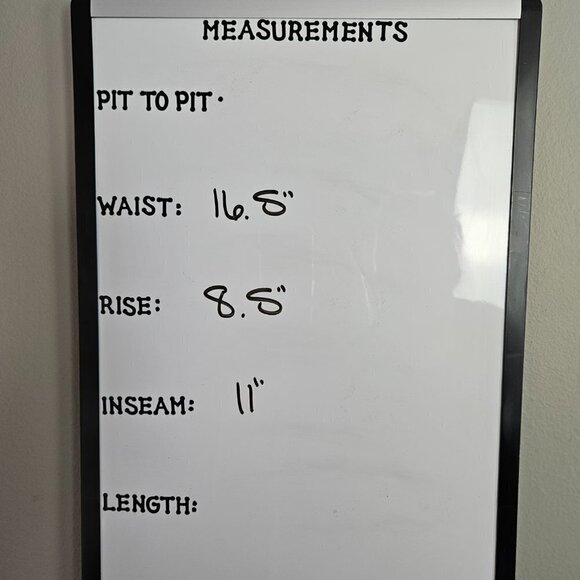 MEASUREMENTS
PIT TO PIT:
WAIST: 16.5"
RISE: 8.5"
INSEAM: 11"
LENGTH: